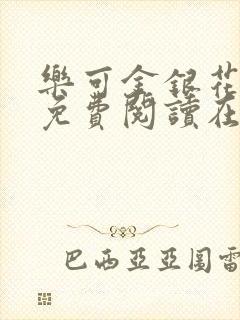 樂可金銀花
免費閱讀在
巴西亞亞圖雷